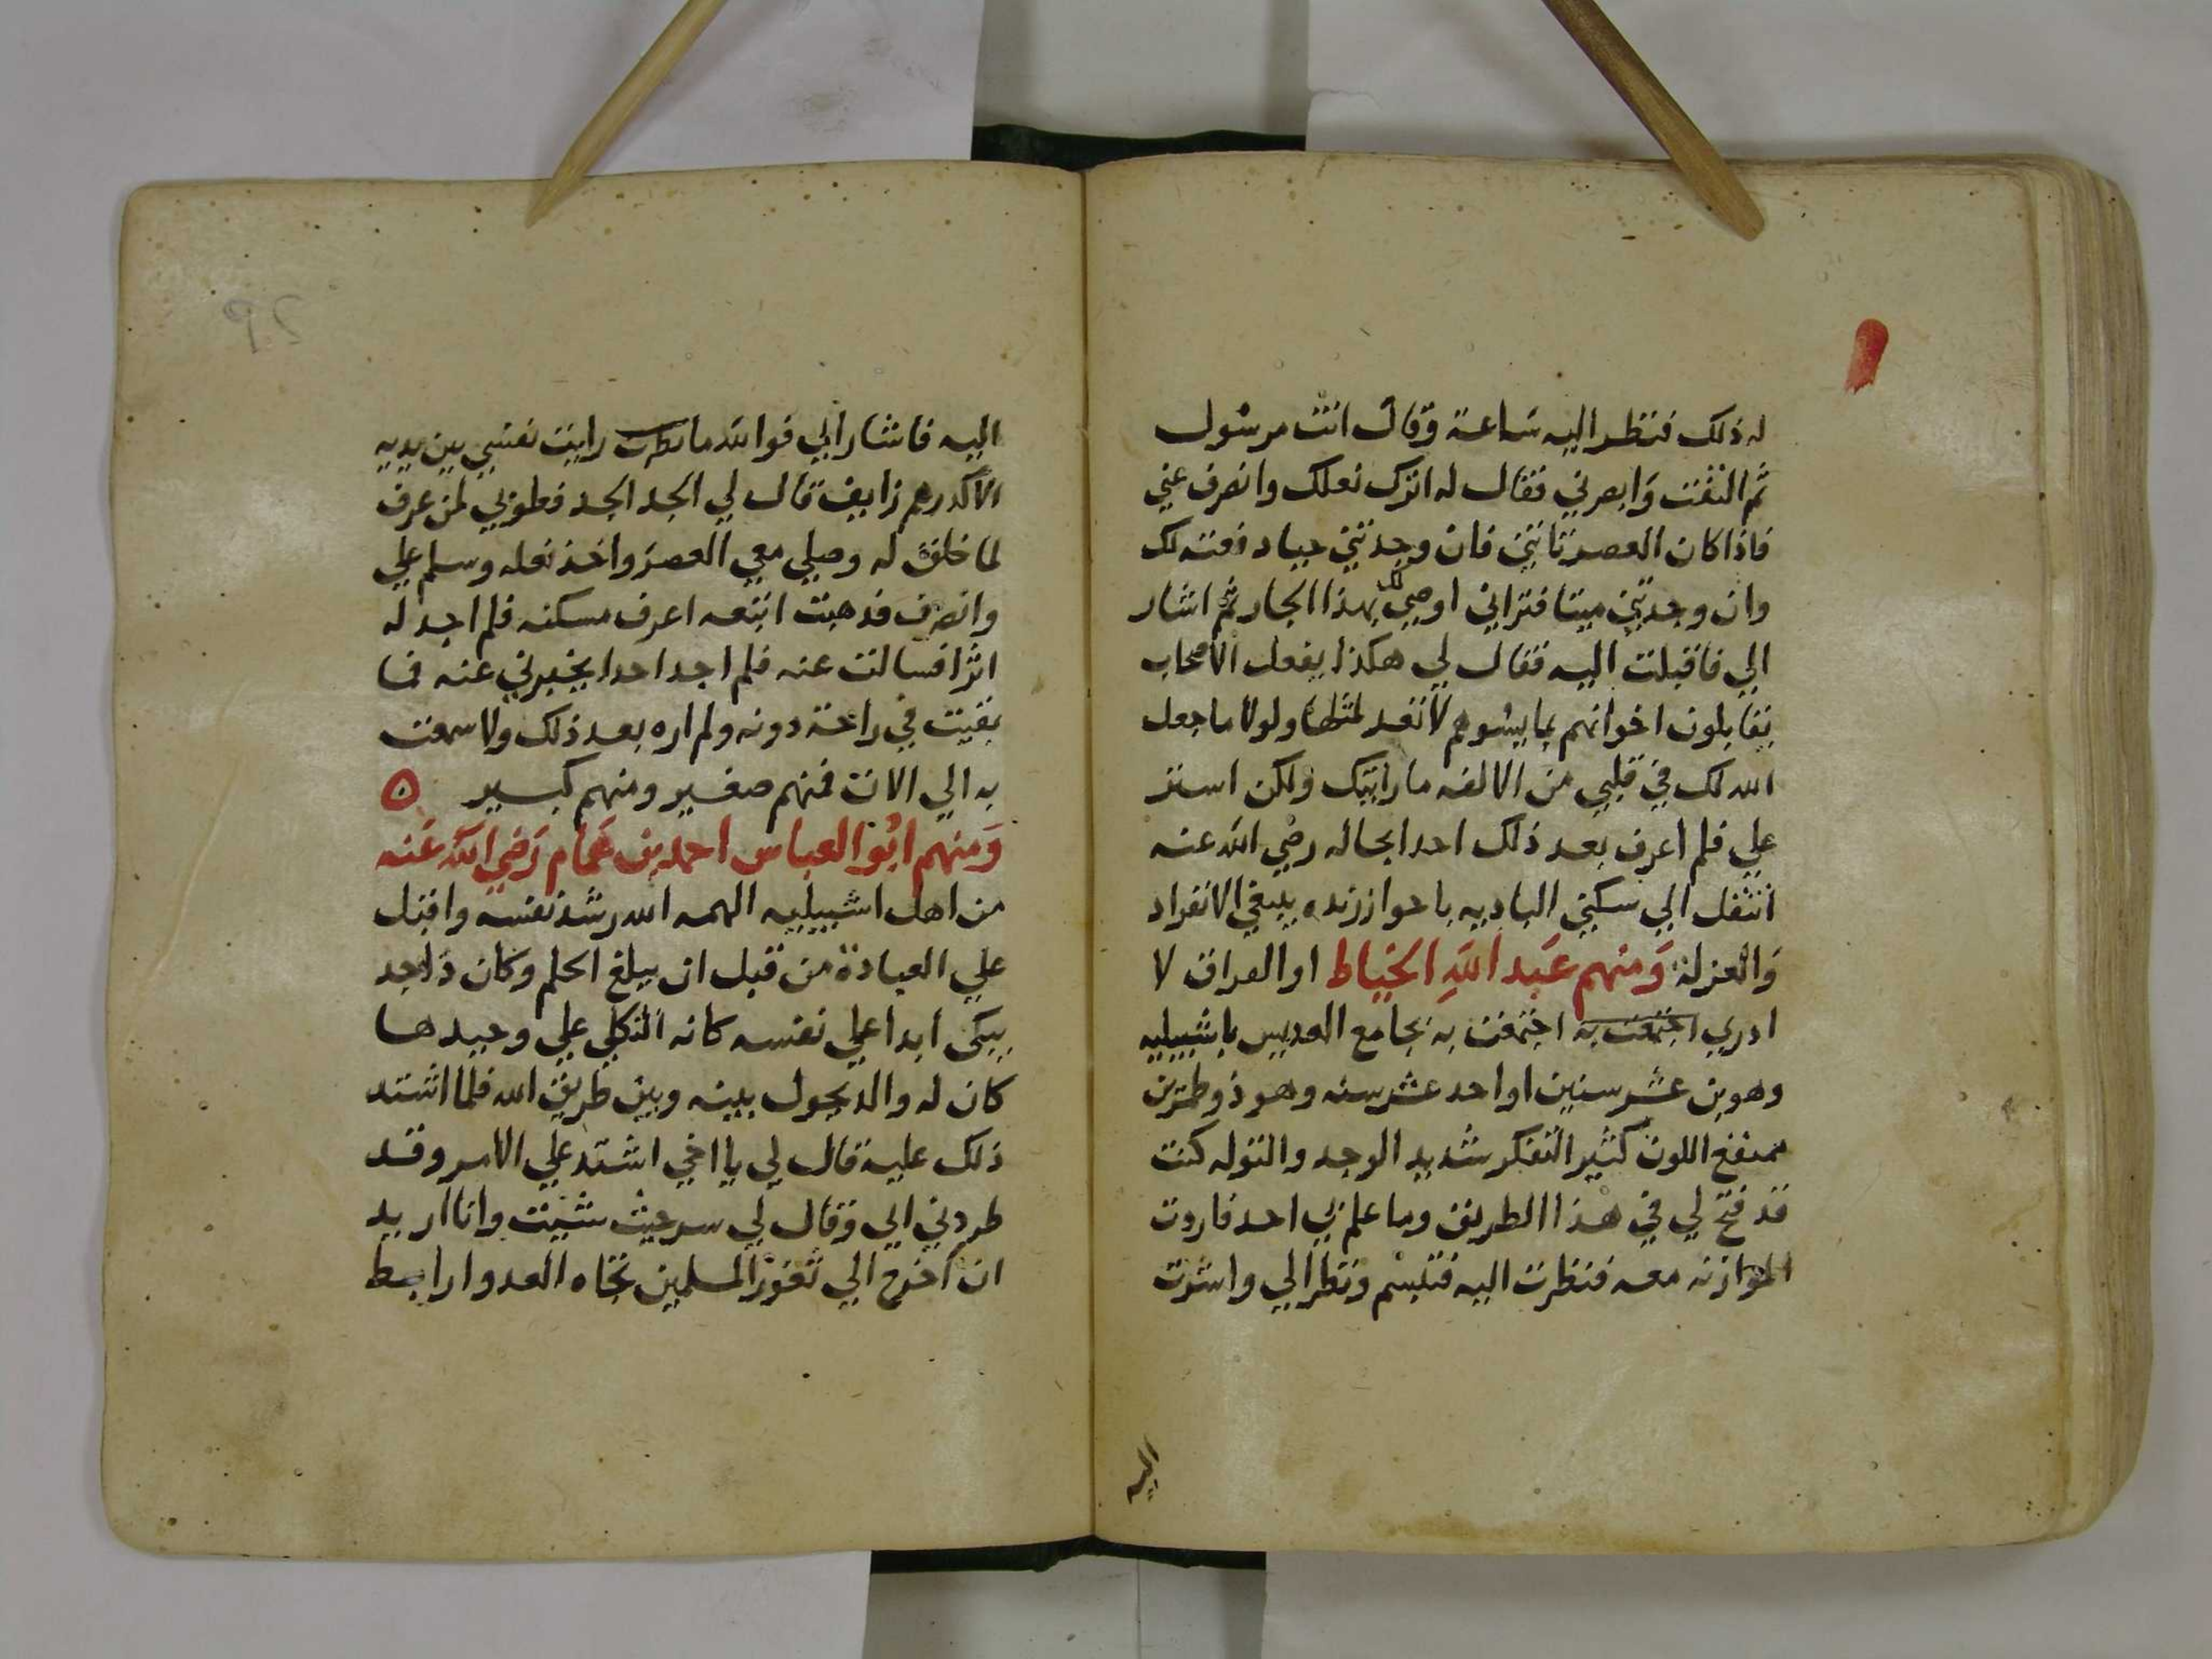 له ذلك فنظر اليه ساعة وقال انت مرسول
ثم التفت وابصرني فقال له اترك نعلك وانصرف عني
فاذا كان العصر تاتني فان وجدتني حيا دفعته لك
وان وجدتني ميتا فتراني اوصي لك بهذا الجار ثم اشار
الي فاقبلت اليه فقال لي هكذا يفعل الاصحاب
يقابلون اخوانهم بما يسوهم لا تعد لمثلها ولولا ما جعل
الله لك في قلبي من الالفه ما رايتك ولكن استر
علي فلم اعرف بعد ذلك احدا بحاله رضي الله عنه
انتقل الي سكني الباديه باحواز رنده يبغي الانفراد
والعزلة ومنهم عبد الله الخياط او القراق لا
ادري اجتمعت به اجتمعت به بجامع العديس باشبيليه
وهو بن عشر سنين او احد عشر سنه وهو ذو طمرين
ممتقع اللون كثير التفكر شديد الوجد والتوله كنت
قد فتح لي في هذا الطريق وما علم بي احد فاردت
الموازنه معه فنظرت اليه فتبسم ونظر الي واشرت
اليه
اليه فاشار الي فوالله ما نظرت رايت نفسي بين يديه
الا كدرهم زايف قال لي الجد الجد فطوبي لمن عرف
لما خلق له وصلي معي العصر واخذ نعله وسلم علي
وانصرف فذهبت اتبعه اعرف مسكنه فلم اجد له
اثرا فسالت عنه فلم اجد احدا يخبرني عنه فما
بقيت في راحة دونه ولم اره بعد ذلك ولا سمعت
به الي الان فمنهم صغير ومنهم كبير
ومنهم ابو العباس احمد بن همام رضي الله عنه
من اهل اشبيليه الهمه الله رشد نفسه واقبل
علي العبادة من قبل ان يبلغ الحلم وكان ذا جد
يبكي ابدا علي نفسه كانه الثكلي علي وحيدها
كان له والد يحول بينه وبين طريق الله فلما اشتد
ذلك عليه قال لي يا اخي اشتد علي الامر وقد
طردني ابي وقال لي سر حيث شيت وانا اريد
ان اخرج الي ثغور المسلمين تجاه العدو ارابط